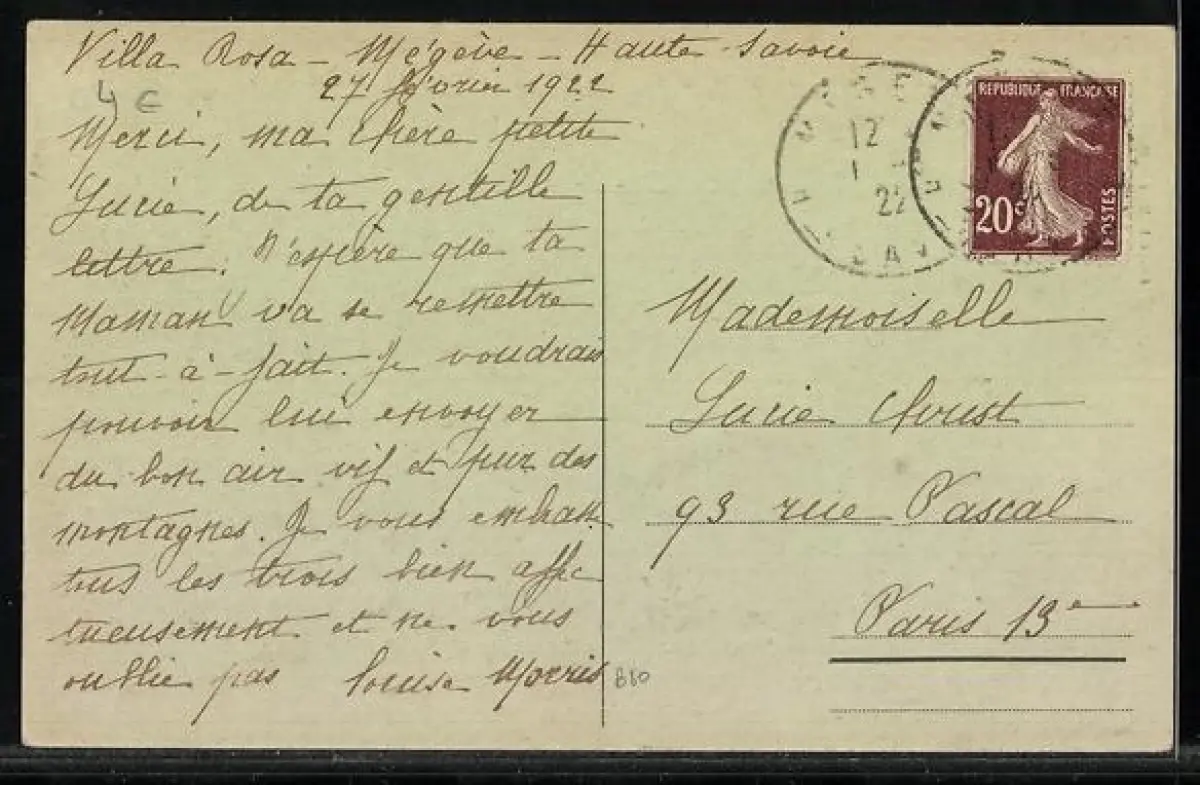 Villa Rosa - Mégève - Haute-Savoie
27 février 1922
4 €
Merci, ma chère petite
Lucie, de ta gentille
lettre. J'espère que ta
Maman va se remettre
tout-à-fait. Je voudrais
pouvoir lui envoyer
du bon air vif et pur des
montagnes. Je vous embrasse
tous les trois bien affec
tueusement et ne vous
oublie pas Louise Morris
880
REPUBLIQUE FRANÇAISE
20c
POSTES
12
22
Mademoiselle
Lucie Christ
93 rue Pascal
Paris 13e